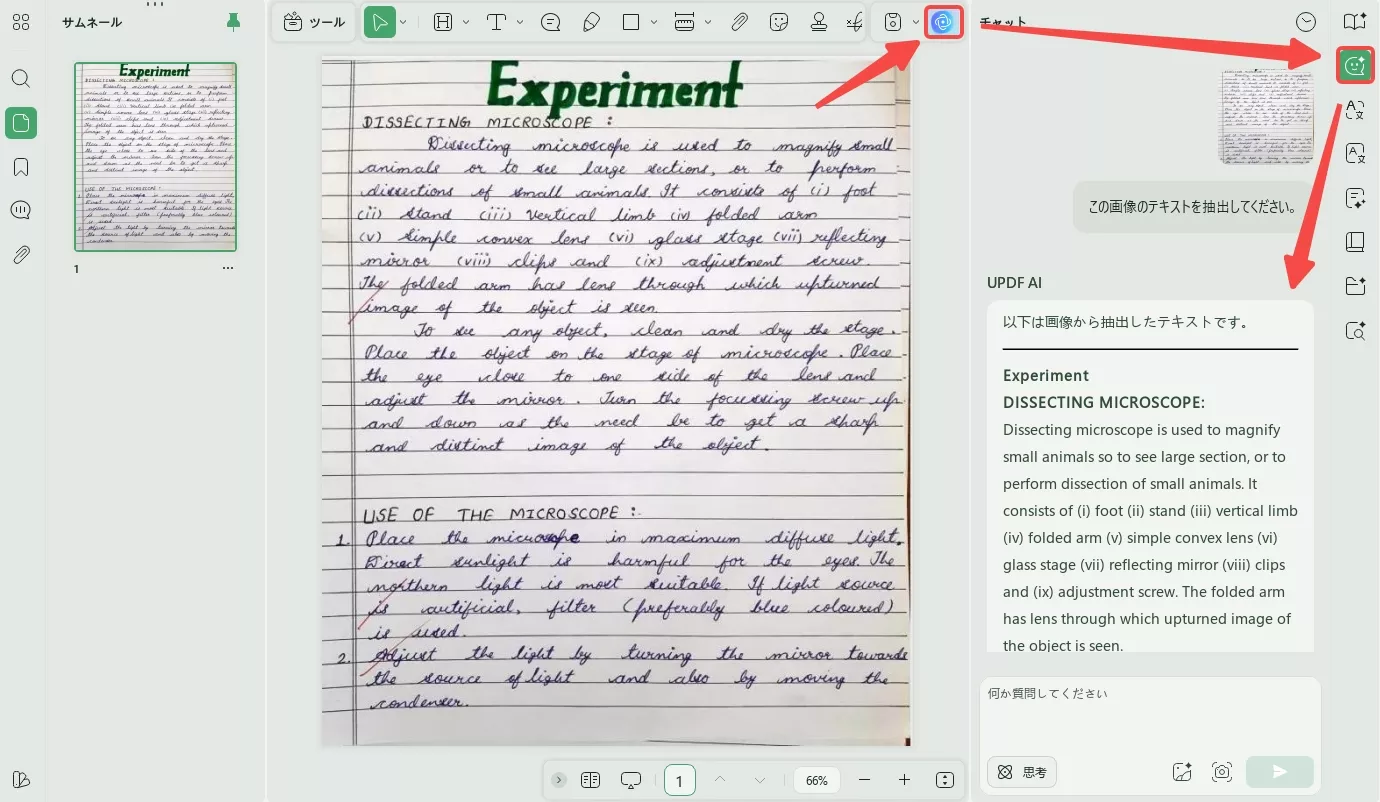 サムネール
1
ツール
Experiment
DISSECTING MICROSCOPE :
Dissecting microscope is used to magnify small
animals or to see large sections, or to perform
dissections of small animals. It consists of (i) foot
(ii) stand (iii) Vertical limb (iv) folded arm
(v) simple convex lens (vi) glass stage (vii) reflecting
mirror (viii) clips and (ix) adjustment screw.
The folded arm has lens through which upturned
image of the object is seen.
To see any object, clean and dry the stage.
Place the object on the stage of microscope. Place
the eye close to one side of the lens and
adjust the mirror. Turn the focussing screw up
and down as the need be to get a sharp
and distinct image of the object.
USE OF THE MICROSCOPE :
1. Place the microscope in maximum diffuse light.
Direct sunlight is harmful for the eyes. The
northern light is most suitable. If light source
is artificial, filter (preferably blue coloured)
is used.
2. Adjust the light by turning the mirror towards
the source of light and also by moving the
condenser.
1
66%
チャット
この画像のテキストを抽出してください。
UPDF AI
以下は画像から抽出したテキストです。
Experiment
DISSECTING MICROSCOPE:
Dissecting microscope is used to magnify
small animals so to see large section, or to
perform dissection of small animals. It
consists of (i) foot (ii) stand (iii) vertical limb
(iv) folded arm (v) simple convex lens (vi)
glass stage (vii) reflecting mirror (viii) clips
and (ix) adjustment screw. The folded arm
has lens through which upturned image of
the object is seen.
何か質問してください
思考